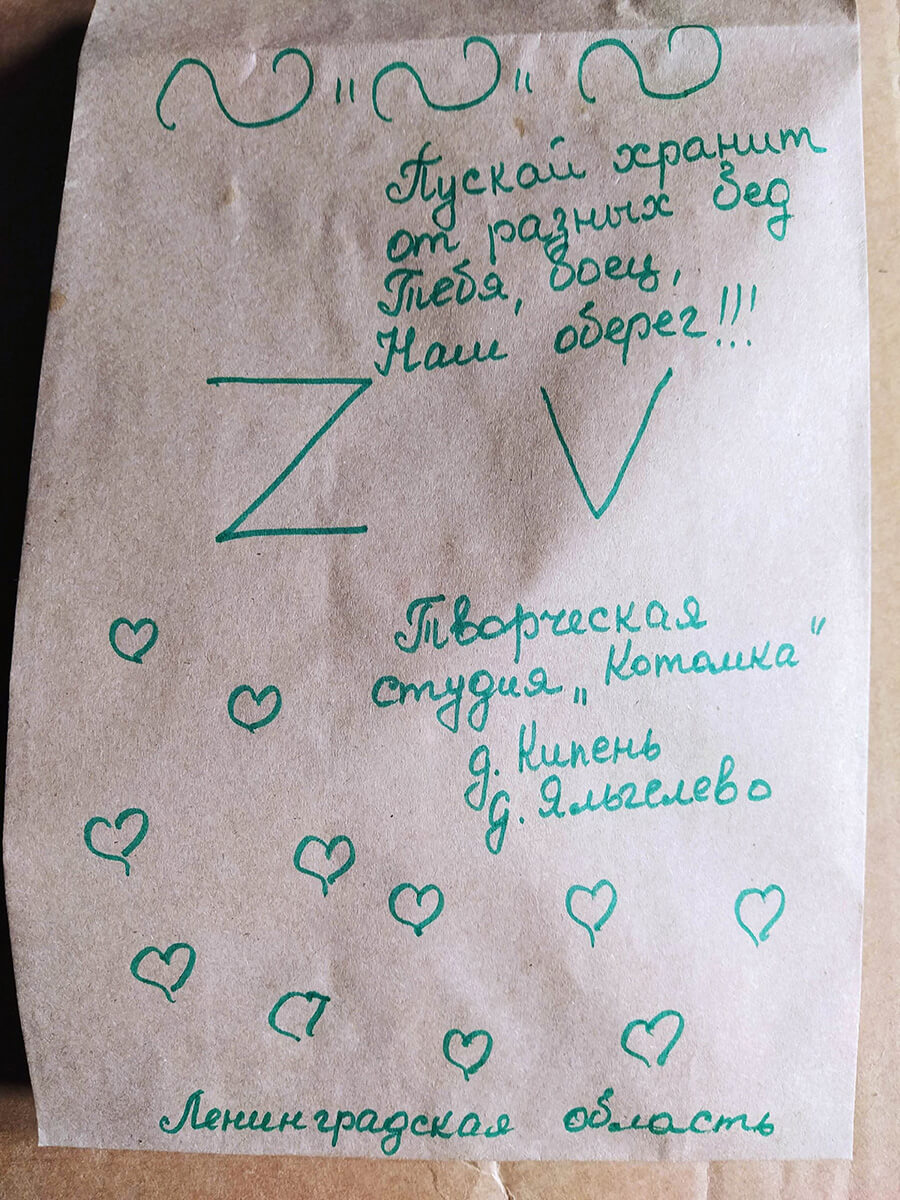 Пускай хранит
от разных бед
Тебя, боец,
Наш оберег!!!
Z V
Творческая
студия „Котомка"
д. Кипень
д. Яльгелево
Ленинградская область